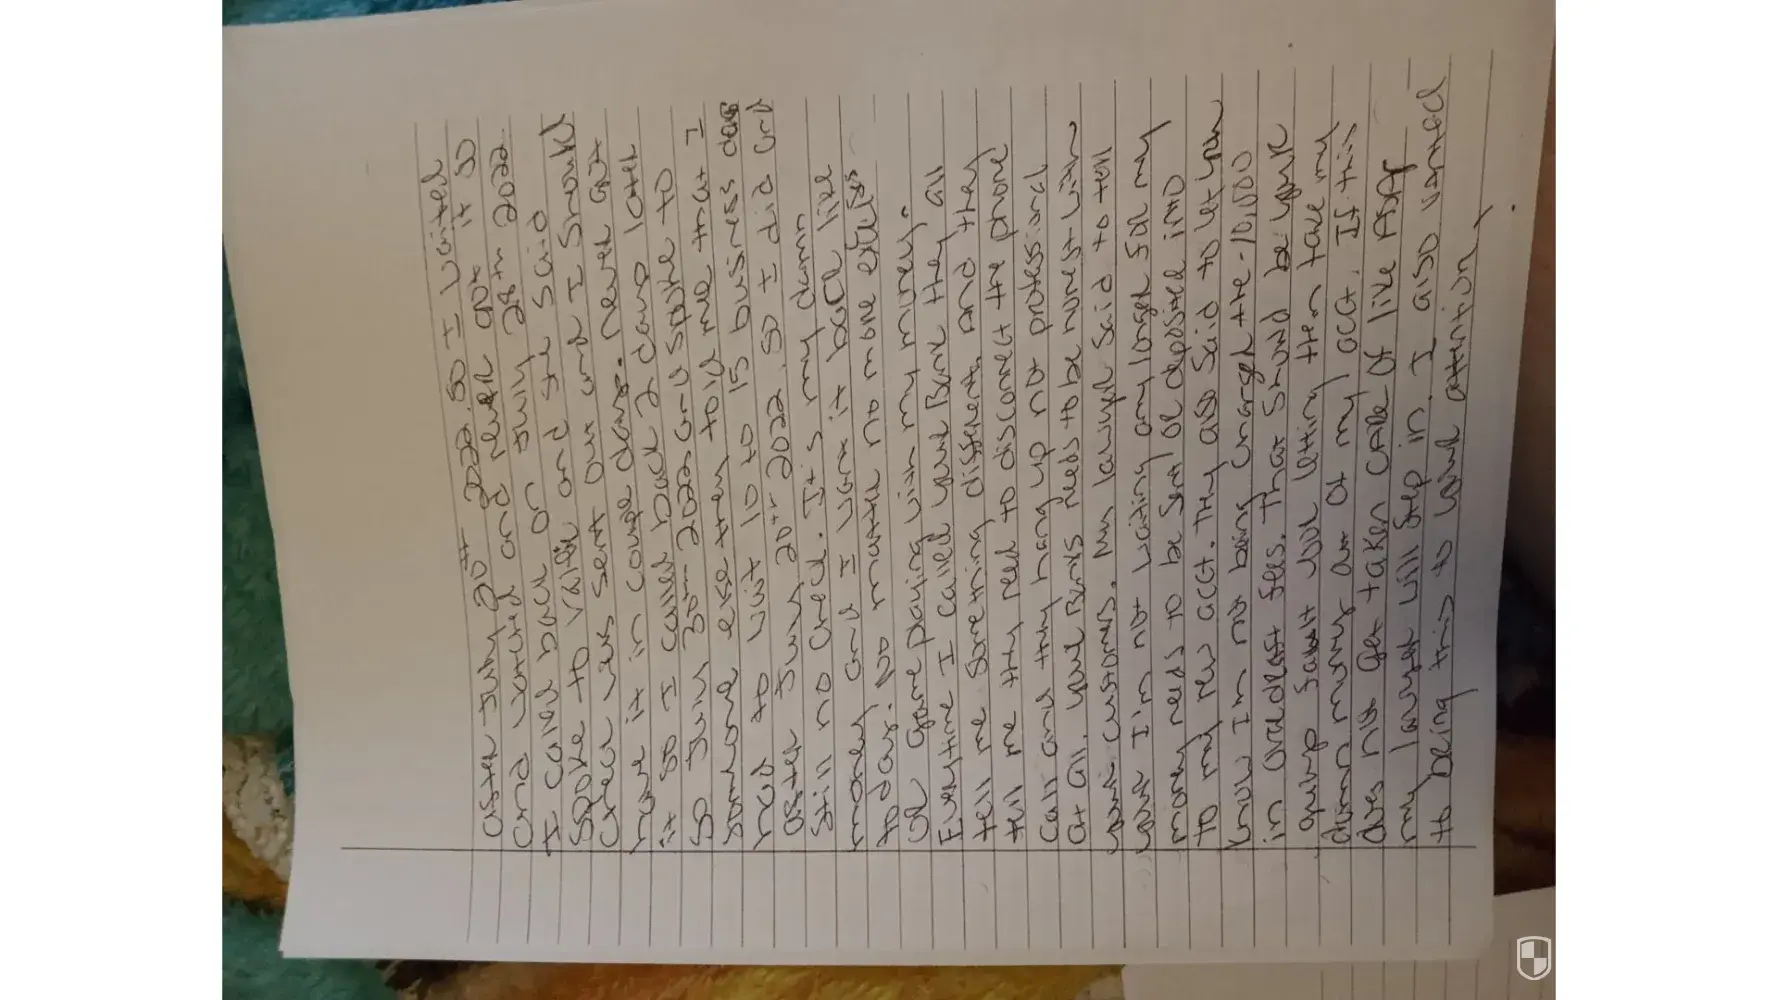 after July 20th 2022. So I waited
and waited and never got it so
I called back on July 28th 2022
spoke to and she said
check was sent out and I should
have it in couple days. Never got
it so I called back 2 days later
so July 30th 2022 and spoke to
someone else they told me that I
had to wait 10 to 15 business days
after July 20th 2022. So I did and
still no check. It's my damn
money and I want it back like
today. No no more
or game playing with my money.
Everytime I called your Bank they all
tell me something different. And they
tell me they need to disconnect the phone
call and they hang up not professional
at all. your Banks needs to be honest with
your customers. My lawyer said to tell
your I'm not waiting any longer for my
money needs to be sent or deposited into
to my new acct. They also said to let you
know I'm not being charged the -10,000
in overdraft fees. That should be your
letting them take my
damn money out of my acct. If this
does not get taken care of like ASAP
my lawyer will step in. I also wanted
to being this to your attention,